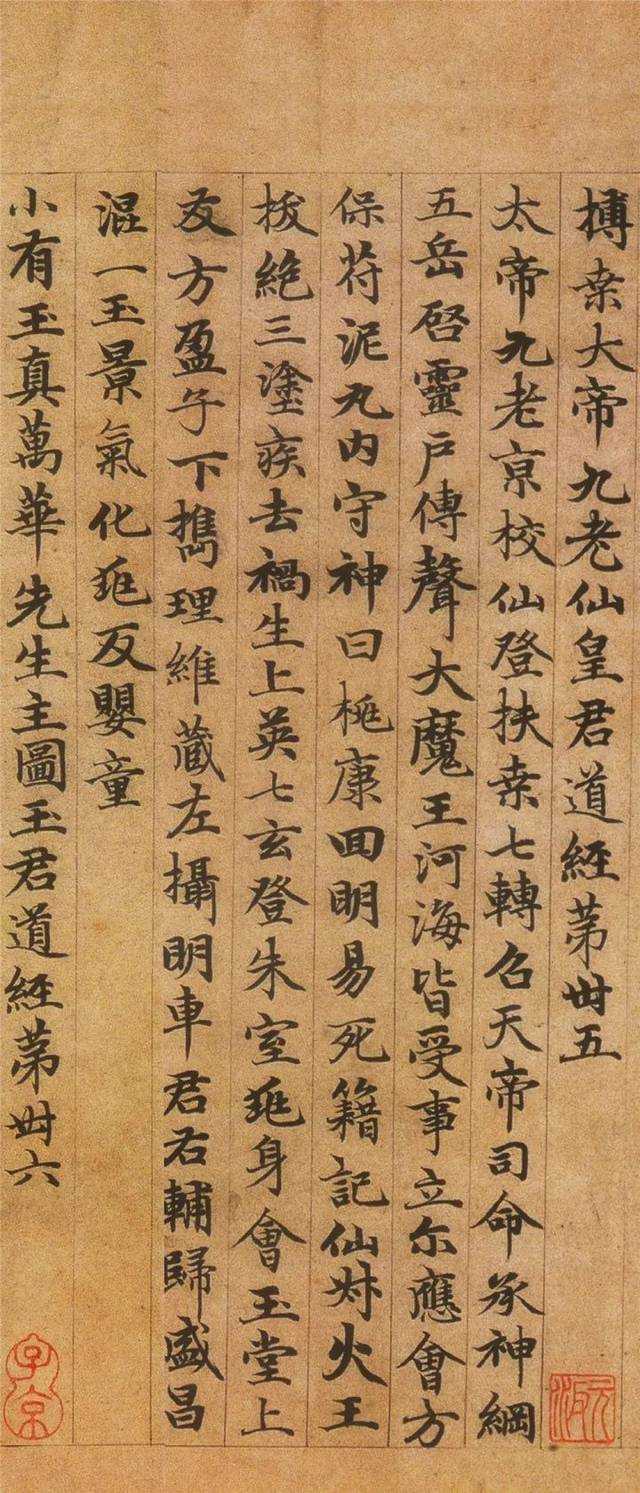 搏桒大帝九老仙皇君道經苐卅五
太帝九老京校仙登扶桒七轉召天帝司命承神綱
五岳啓靈戶傳聲大魔王河海皆受事立尓應會方
保苻泥丸内守神曰桃康回明易死籍記仙火王
拔絶三塗疾去禍生上英七玄登朱室身會玉堂上
友方盈子下攜理維藏左攝明車君右輔歸盛昌
混一玉景氣化反嬰童
小有玉真萬華先生主圖玉君道經苐卅六
子京